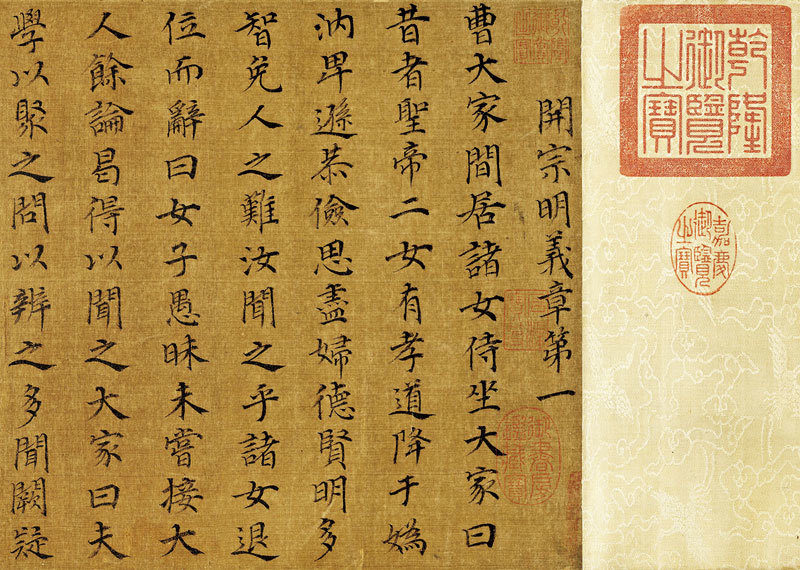 乾隆
御覽
之寶
嘉慶
御覽
之寶
開宗明義章第一
曹大家間居諸女侍坐大家曰
昔者聖帝二女有孝道降于媯
汭卑遜恭儉思盡婦德賢明多
智免人之難汝聞之乎諸女退
位而辭曰女子愚昧未嘗接大
人餘論曷得以聞之大家曰夫
學以聚之問以辨之多聞闕疑
御書房
鑑藏寶